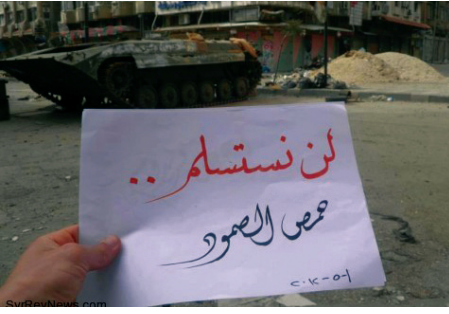 لن نستسلم ..
حمص الصمود
SyrRevNews.com